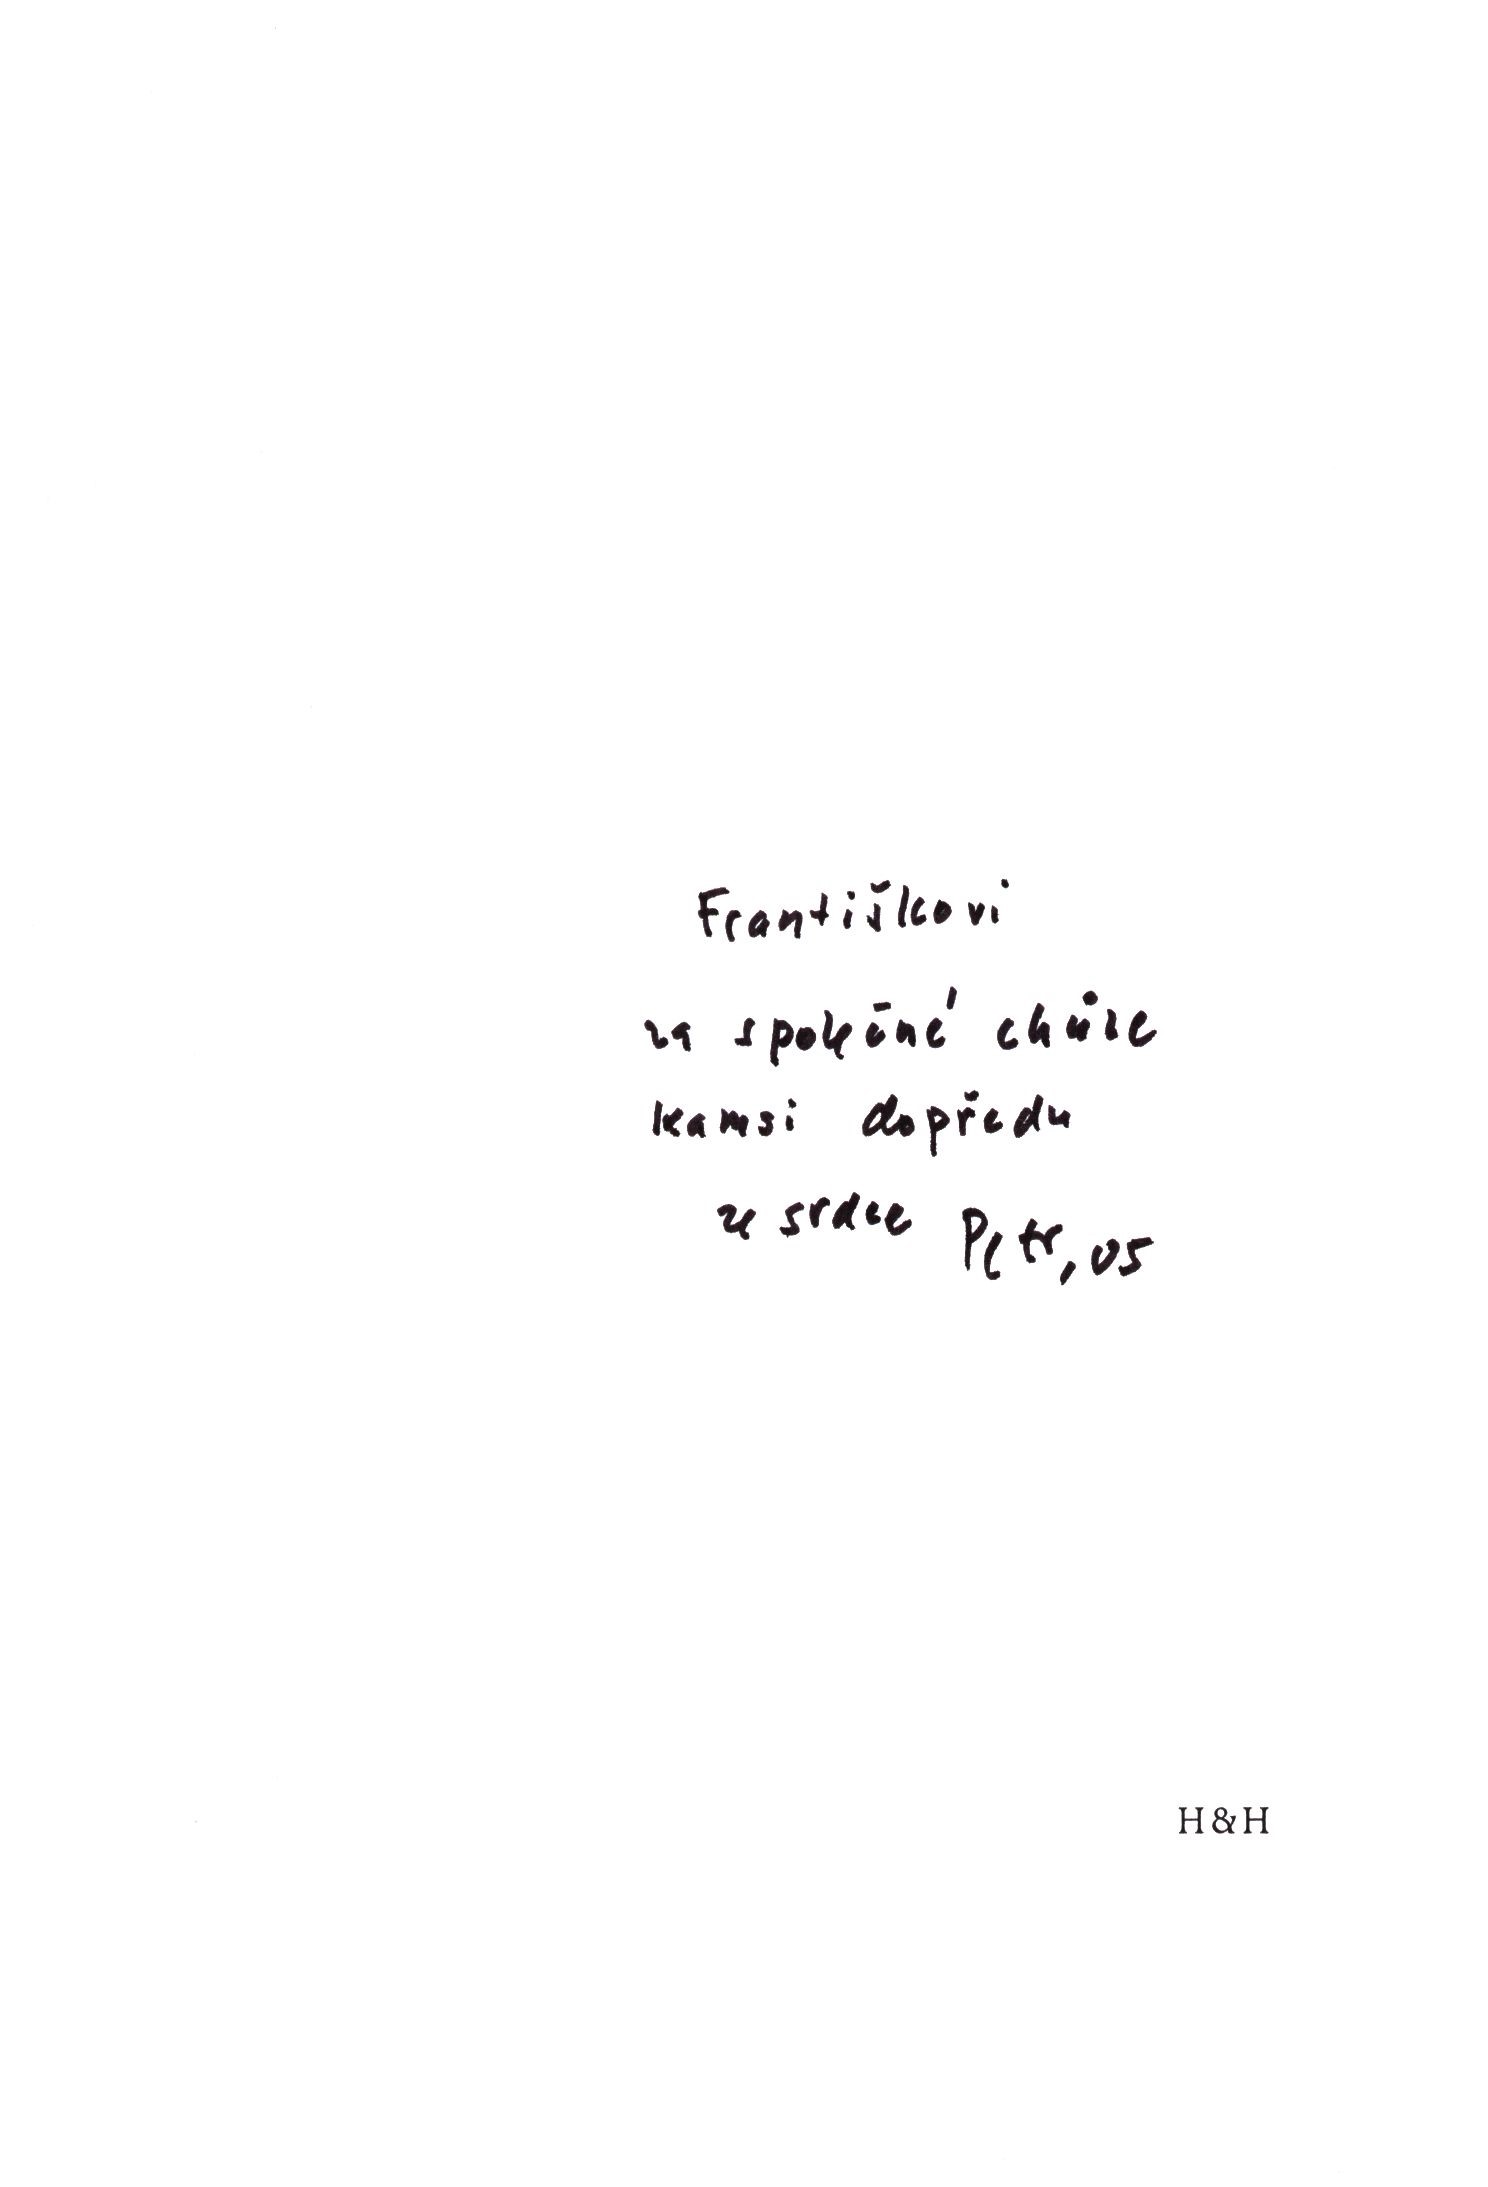 Františkovi
za společné chůze
kamsi dopředu
ze srdce Petr, 05
H&H